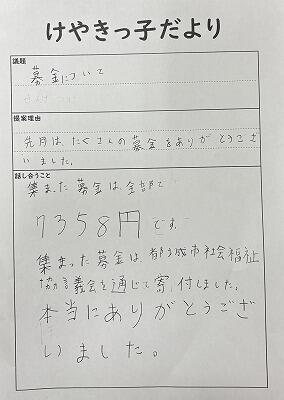 けやきっ子だより
議題
募金について
提案理由
先月は、たくさんの募金をありがとうござ
いました。
話し合うこと
集まった募金は、全部で
7358円です。
集まった募金は、都城市社会福祉
協議会を通じて寄付しました。
本当にありがとうござ
いました。